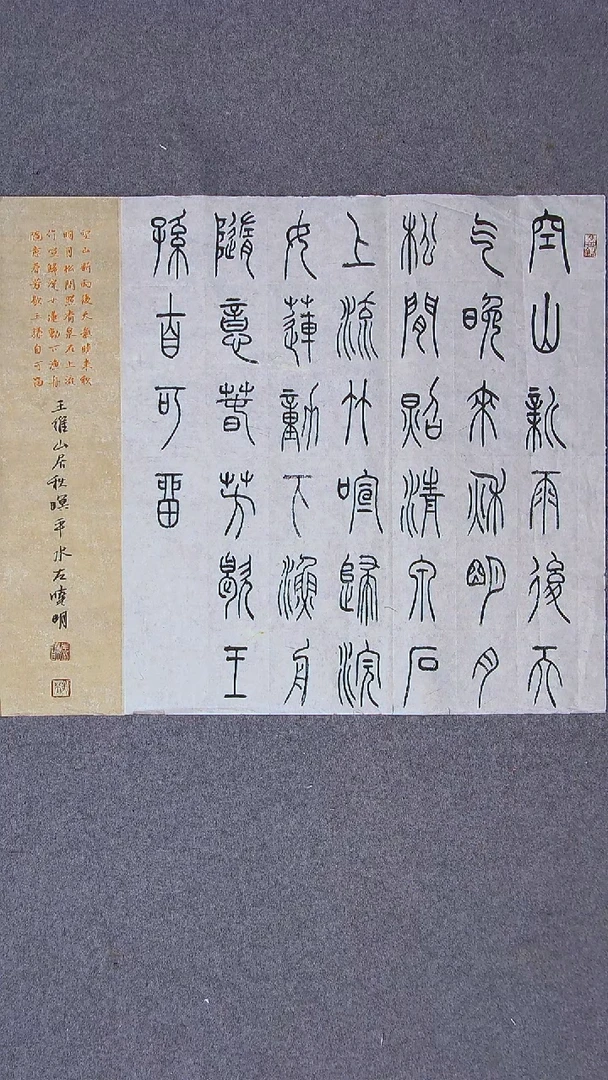 空山新雨後天
气晚來秋明月
松間照清泉石
上流竹喧歸浣
女蓮動下漁舟
隨意春芳歇王
孫自可留
空山新雨後天氣晚來秋
明月松間照清泉石上流
竹喧歸浣女蓮動下漁舟
隨意春芳歇王孫自可留
王維山居秋暝平水左曉明